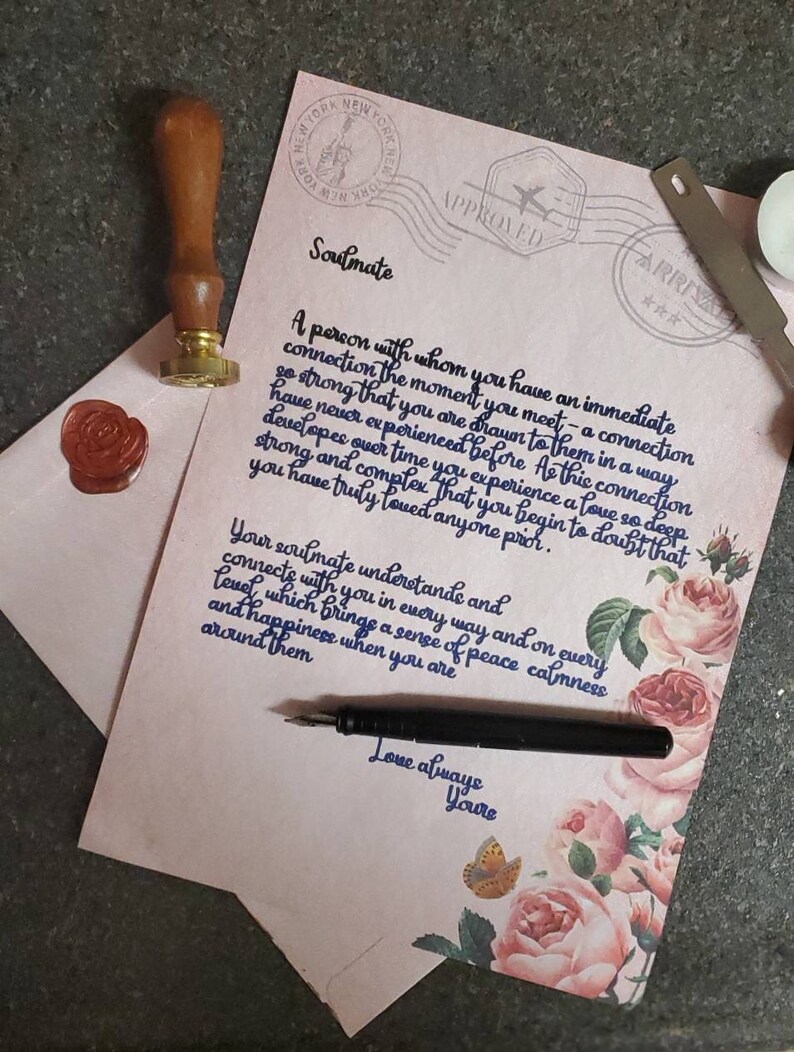 NEW YORK NEW YORK NEW YORK NEW YORK
APPROVED
ARRIVAL
Soulmate
A person with whom you have an immediate
connection the moment you meet – a connection
so strong that you are drawn to them in a way
have never experienced before. As this connection
developes over time you experience a love so deep
strong and complex that you begin to doubt that
you have truly loved anyone prior.
Your soulmate understands and
connects with you in every way and on every
level, which brings a sense of peace calmness
and happiness when you are
around them
Love always
Yours